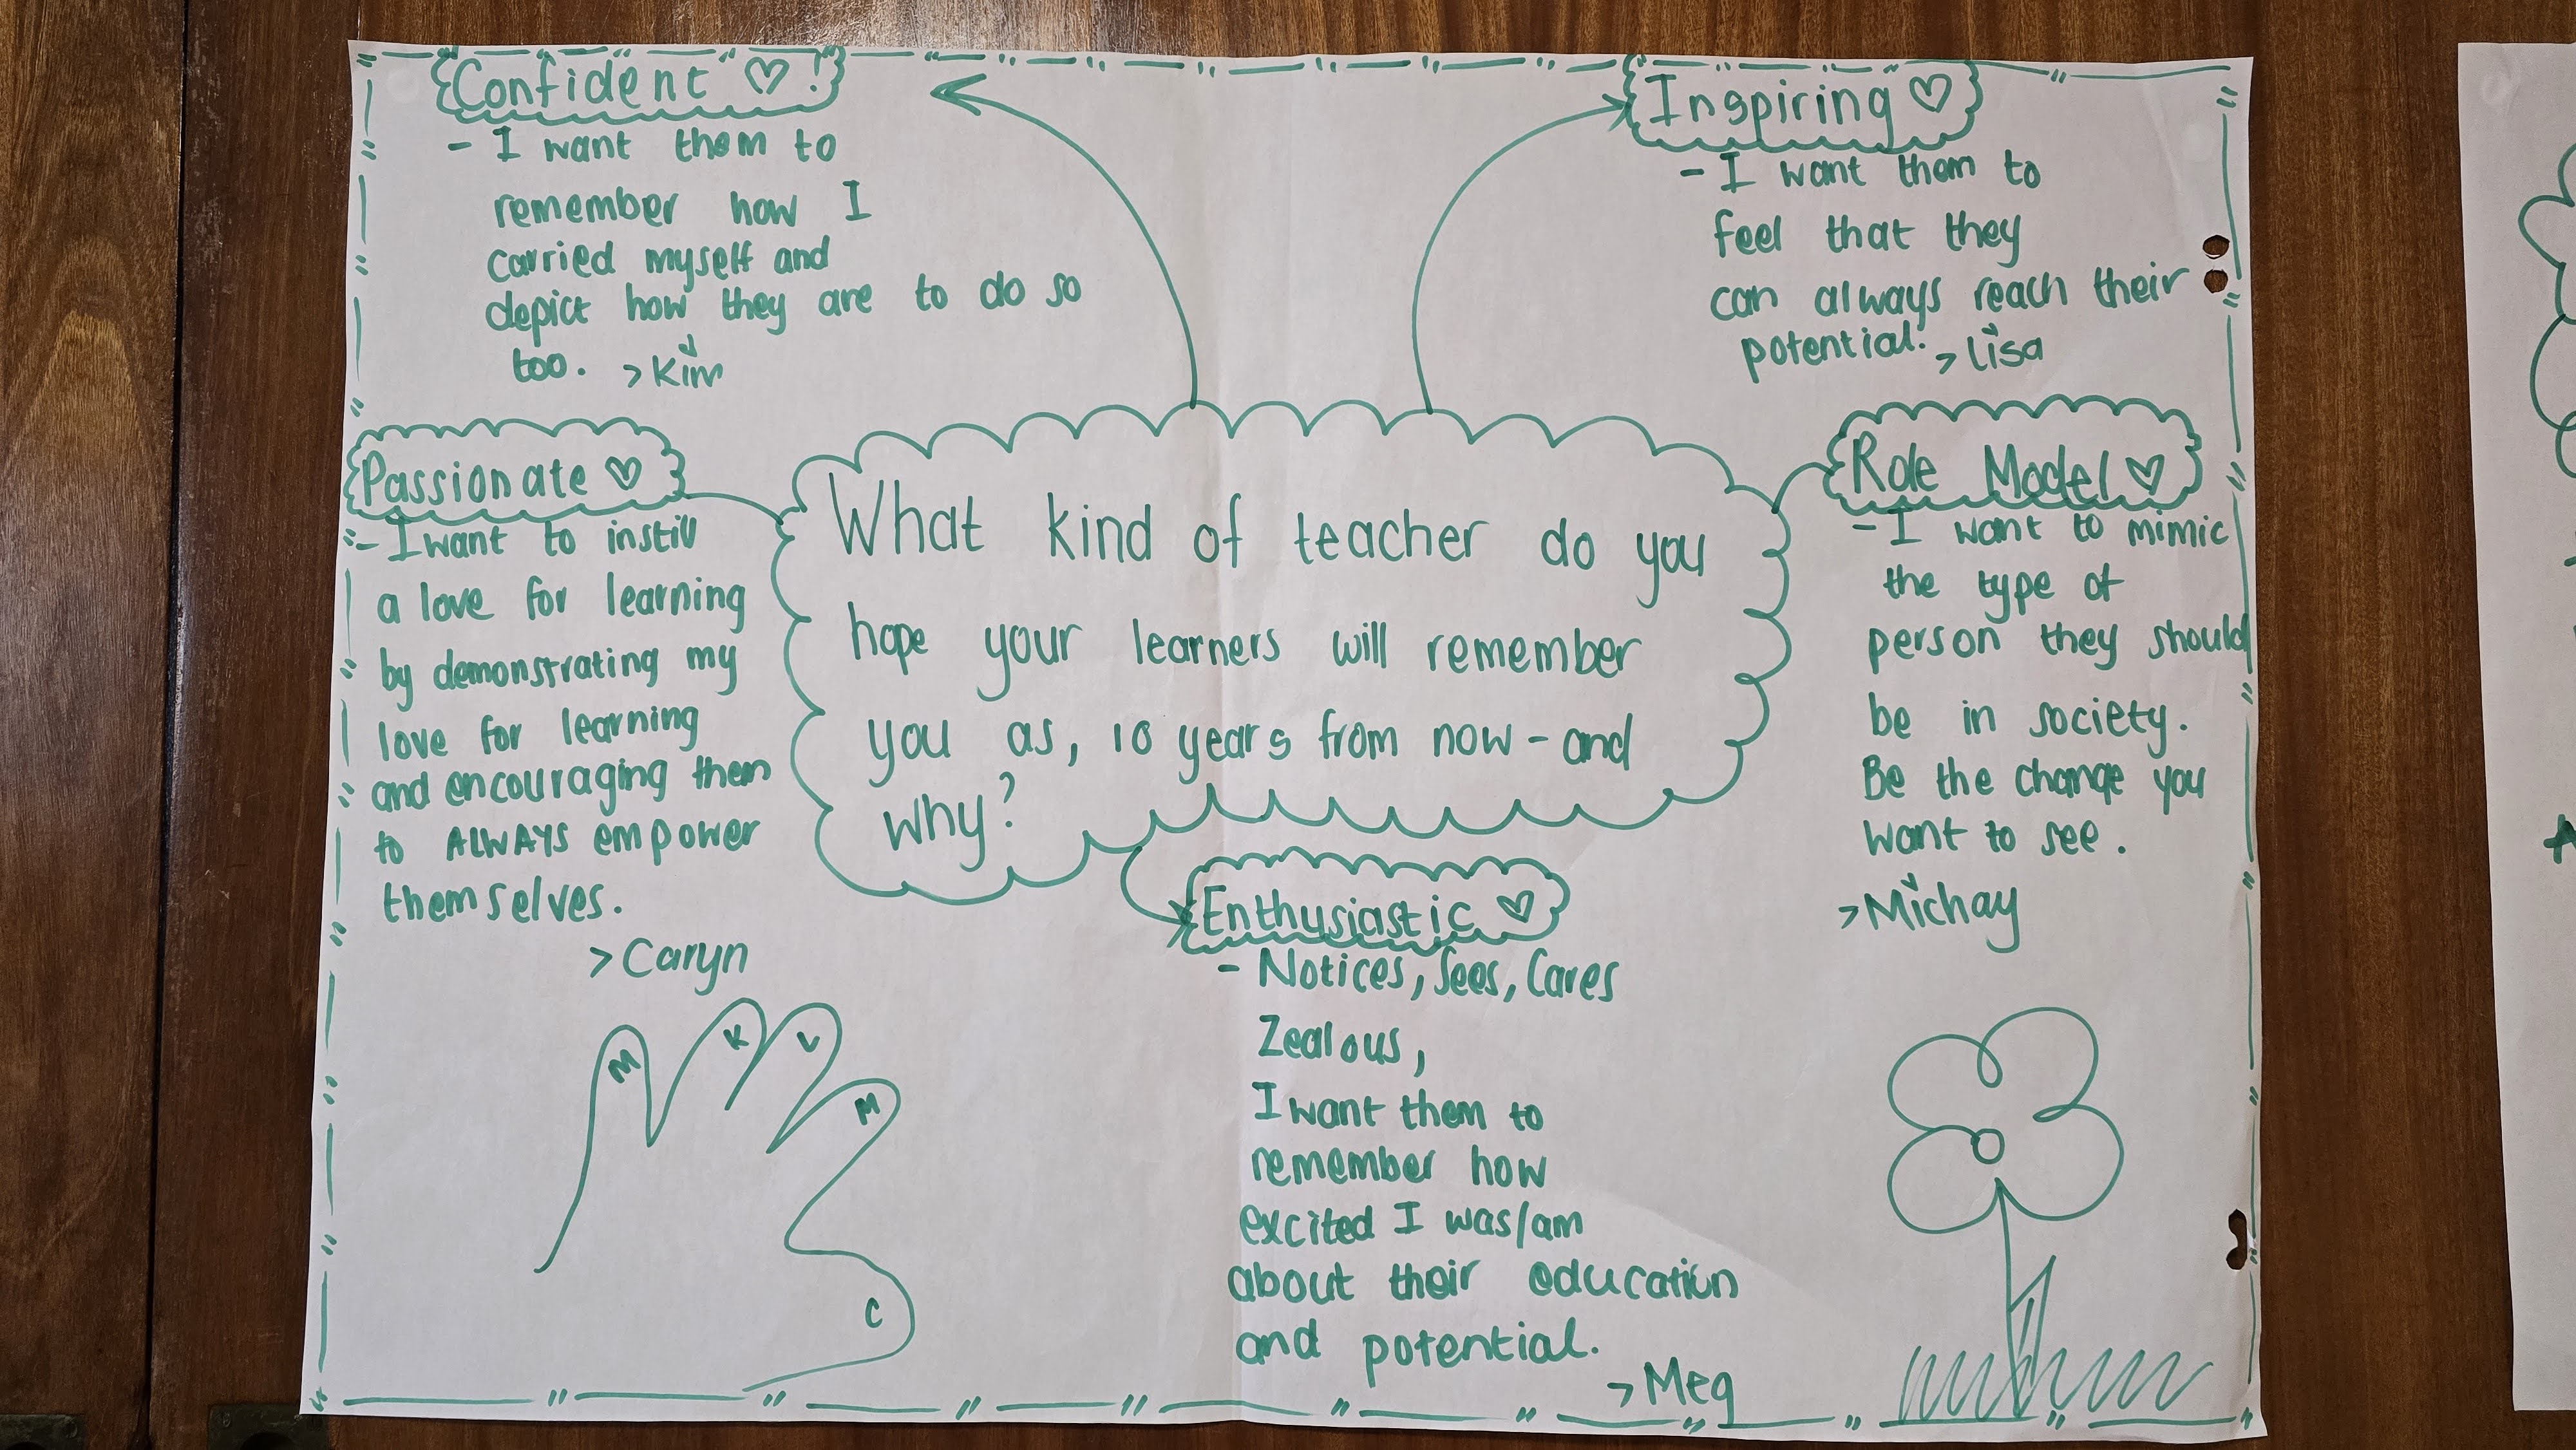 Confident ♡!
- I want them to
remember how I
carried myself and
depict how they are to do so
too. > Kim
Inspiring ♡
- I want them to
feel that they
can always reach their
potential. > Lisa
Passionate ♡
- I want to instill
a love for learning
by demonstrating my
love for learning
and encouraging them
to ALWAYS empower
themselves.
> Caryn
What kind of teacher do you
hope your learners will remember
you as, 10 years from now - and
why?
Role Model ♡
- I want to mimic
the type of
person they should
be in society.
Be the change you
want to see.
> Michay
Enthusiastic ♡
- Notices, Sees, Cares
Zealous,
I want them to
remember how
excited I was/am
about their education
and potential.
> Meg
M
K
L
M
C